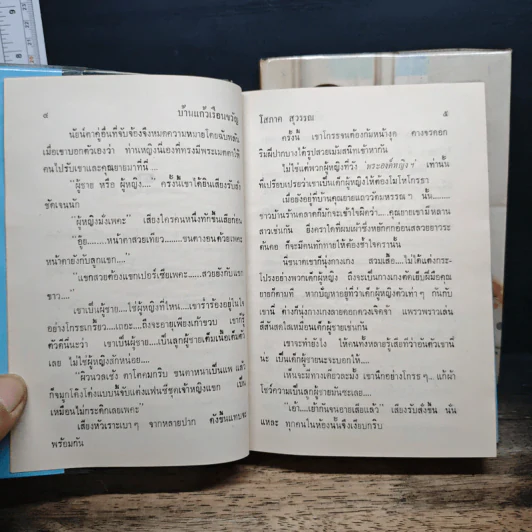 ๔ บ้านแก้วเรือนขวัญ
นัยน์ตาคู่อื่นที่จับจ้องจึงหมดความหมายโดยฉับพลัน
เมื่อเขาบอกตัวเองว่า ท่านหญิงนี่เองที่ทรงมีพระเมตตาให้
คนไปรับเขาและคุณยายมาที่นี่ ...
"ผู้ชาย หรือ ผู้หญิง...." ครั้งนี้เขาได้ยินเสียงรับสั่ง
ชัดเจนนัก
"ผู้หญิงมั้งเพคะ" เสียงใครคนหนึ่งทักขึ้นเสียก่อน
"อุ๊ย.......หน้าตาสวยเทียว........ขนตางอนด้วยเพคะ
หน้าตายังกับลูกแขก...."
"แขกสวยต้องแขกเปอร์เซียเพคะ....สวยยังกับแขก
ขาว...."
เขาเป็นผู้ชาย....ใช่ผู้หญิงที่ไหน....เขาร่ำร้องอยู่ในใจ
อย่างโกรธเกรี้ยว....เถอะ....ถึงจะอายุเพียงเก้าขวบ เขาก็รู้
ตัวดีนี่นะว่า เขาเป็นผู้ชาย....เป็นลูกผู้ชายเต็มเนื้อเต็มตัว
เลย ไม่ใช่ผู้หญิงสักหน่อย....
"ผิวนวลเชียว ตาโตคมกริบ ขนตาหนาเป็นแพ แล้ว
ก็จมูกโด่งโด่งแบบนี้จับแต่งแฟนซีชุดเจ้าหญิงแขก เป็น
เหมือนไม่กระดิกเลยเพคะ"
เสียงหัวเราะเบา ๆ จากหลายปาก ดังขึ้นแทบจะ
พร้อมกัน
โสภาค สุวรรณ ๕
ครั้งนี้ เขาโกรธจนต้องก้มหน้างุด คางจรดอก
ริมฝีปากบางได้รูปสวยเม้มสนิทเข้าหากัน
ไม่ใช่แต่พวกผู้หญิงที่วัง 'พระองค์หญิง' เท่านั้น
ที่เปรียบเปรยว่าเขาเป็นเด็กผู้หญิงให้ต้องโมโหโกรธา
เมื่อยังอยู่ที่บ้านคุณยายแถววัดมหรรณ ๆ นั้น.......
ชาวบ้านร้านตลาดก็มักจะเข้าใจผิดว่า....คุณยายเขามีหลาน
สาวเช่นกัน ยิ่งคราใดที่ผมเผ้าซึ่งหยักศกอ่อนสลวยยาวระ
ต้นคอ ก็จะมีคนทักทายให้ต้องช้ำใจครานั้น
นี่ขนาดเขาก็นุ่งกางเกง สวมเสื้อ....ไม่ได้แต่งกระ
โปรงอย่างพวกเด็กผู้หญิง ถึงจะเป็นกางเกงตัดเย็บฝีมือคุณ
ยายก็ตามที หากปัญหาอยู่ที่ว่าเด็กผู้หญิงตัวเท่า ๆ กันกับ
เขานี่ ต่างก็นุ่งกางเกงลายดอกดวงเจิดจ้า แพรวพราวเล่น
สีสันสดใสเหมือนเด็กผู้ชายเช่นกัน
เขาจะทำยังไง ให้คนทั้งหลายรู้เสียทีว่าอันตัวเขานี้
น่ะ เป็นเด็กผู้ชายนะจะบอกให้....
เห็นจะมีทางเดียวละมั้ง เขานึกอย่างโกรธ ๆ... แก้ผ้า
โชว์ความเป็นลูกผู้ชายมันซะเลย....
"เอ้า....เย้ากันจนอายเสียแล้ว" เสียงรับสั่งขึ้น นั่น
แหละ ทุกคนในห้องนั้นจึงเงียบกริบ